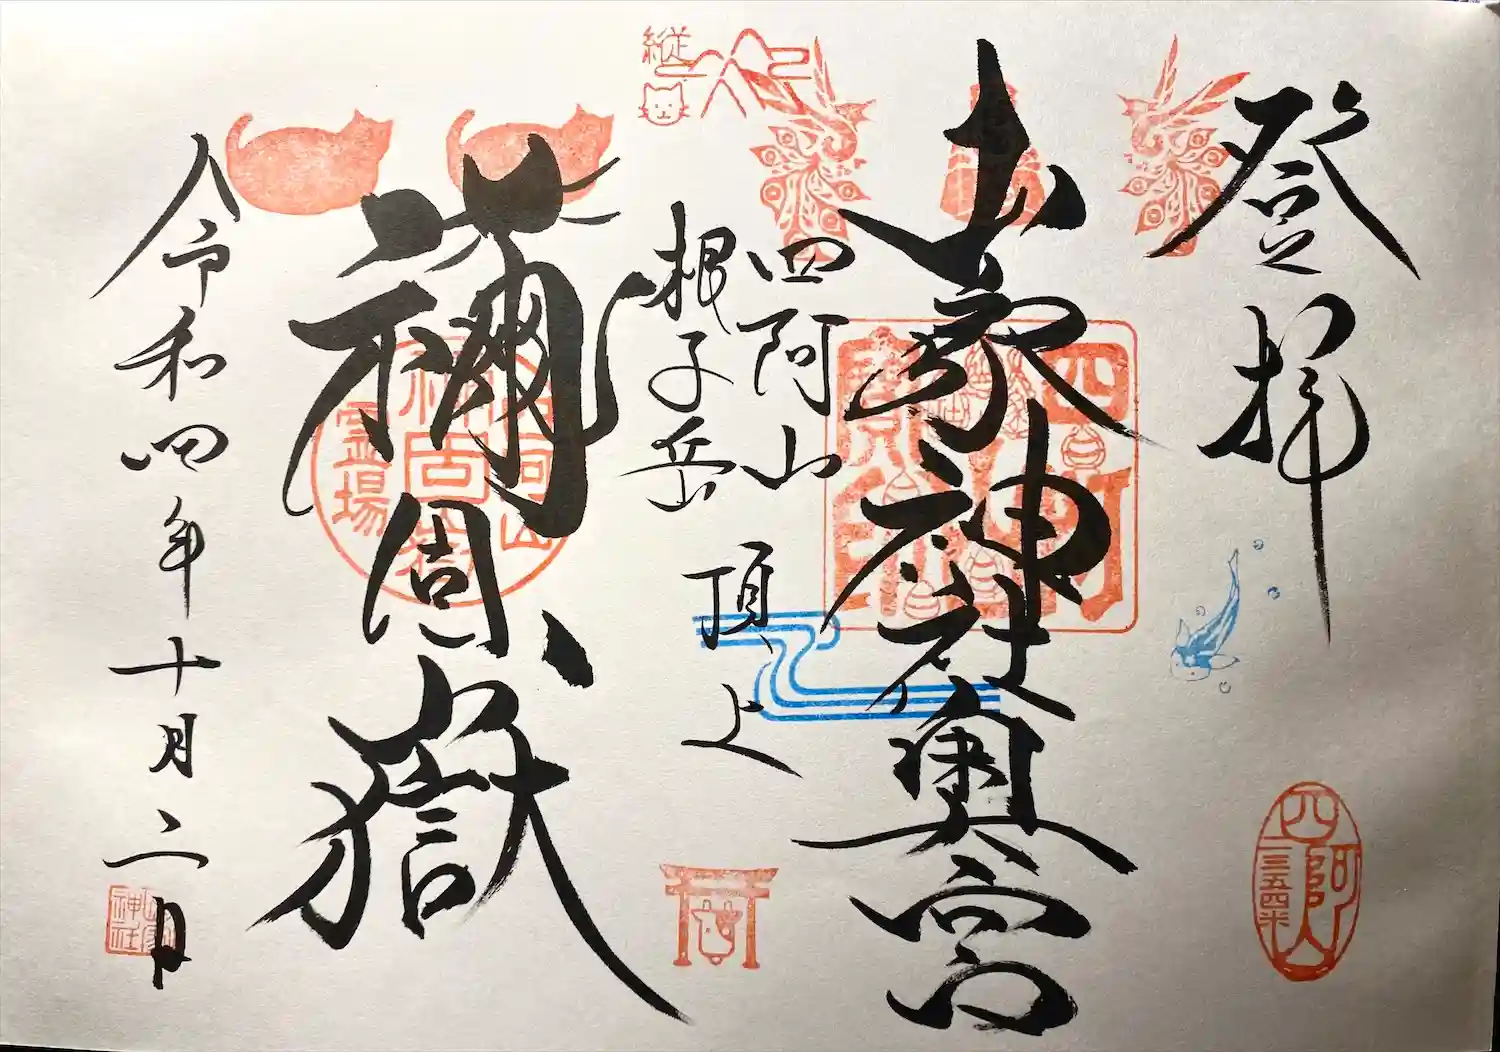 登拝
山家神社奥宮
四阿山
根子岳
頂上
禰固嶽
令和四年十月二日
縦
四阿山
二三五四米
霊場
山家
神社